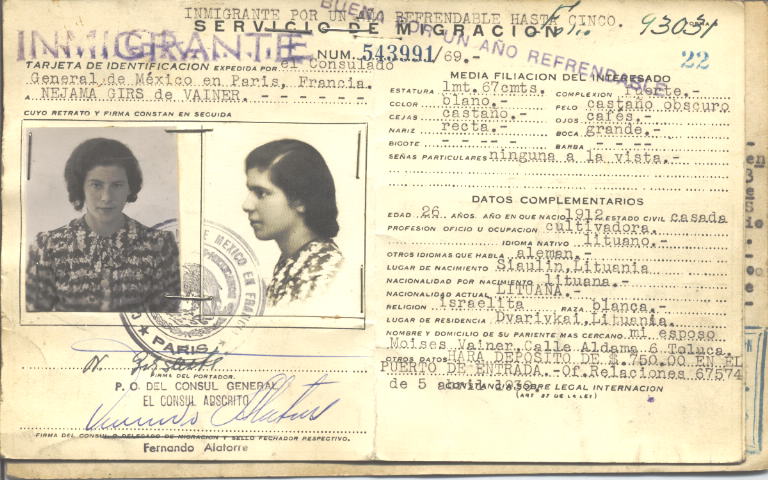 INMIGRANTE POR UN AÑO REFRENDABLE HASTA CINCO.
SERVICIO DE MIGRACION
93031
INMIGRANTE
BUENA POR UN AÑO REFRENDABLE
NUM. 543991/69.-
22
TARJETA DE IDENTIFICACION EXPEDIDA POR el Consulado
General de México en Paris, Francia.
A NEJAMA GIRS de VAINER. - - - - - -
CUYO RETRATO Y FIRMA CONSTAN EN SEGUIDA
DE MEXICO EN FRANCIA
PARIS
FIRMA DEL PORTADOR.
P. O. DEL CONSUL GENERAL
EL CONSUL ADSCRITO
FIRMA DEL CONSUL O DELEGADO DE MIGRACION Y SELLO FECHADOR RESPECTIVO.
Fernando Alatorre
MEDIA FILIACION DEL INTERESADO
ESTATURA 1mt.67cmts. COMPLEXION fuerte.-
COLOR blano.- PELO castaño obscuro
CEJAS castaño.- OJOS cafés.-
NARIZ recta.- BOCA grande.-
BIGOTE - - - - - BARBA - - - -
SEÑAS PARTICULARES ninguna a la vista.-
DATOS COMPLEMENTARIOS
EDAD 26 AÑOS. AÑO EN QUE NACIO 1912 ESTADO CIVIL casada
PROFESION OFICIO U OCUPACION cultivadora.
IDIOMA NATIVO lituano.-
OTROS IDIOMAS QUE HABLA aleman.-
LUGAR DE NACIMIENTO Siaulin,Lituania
NACIONALIDAD POR NACIMIENTO lituana.-
NACIONALIDAD ACTUAL LITUANA.-
RELIGION israelita RAZA blanca.-
LUGAR DE RESIDENCIA Dvarivkai,Lituania.
NOMBRE Y DOMICILIO DE SU PARIENTE MAS CERCANO mi esposo
Moises Vainer,Calle Aldama 6 Toluca.
OTROS DATOS HARA DEPOSITO DE $.750.00 EN EL
PUERTO DE ENTRADA.-Of.Relaciones 67574
de 5 abril 1939.
SOBRE LEGAL INTERNACION
(ART 37 DE LA LEY)